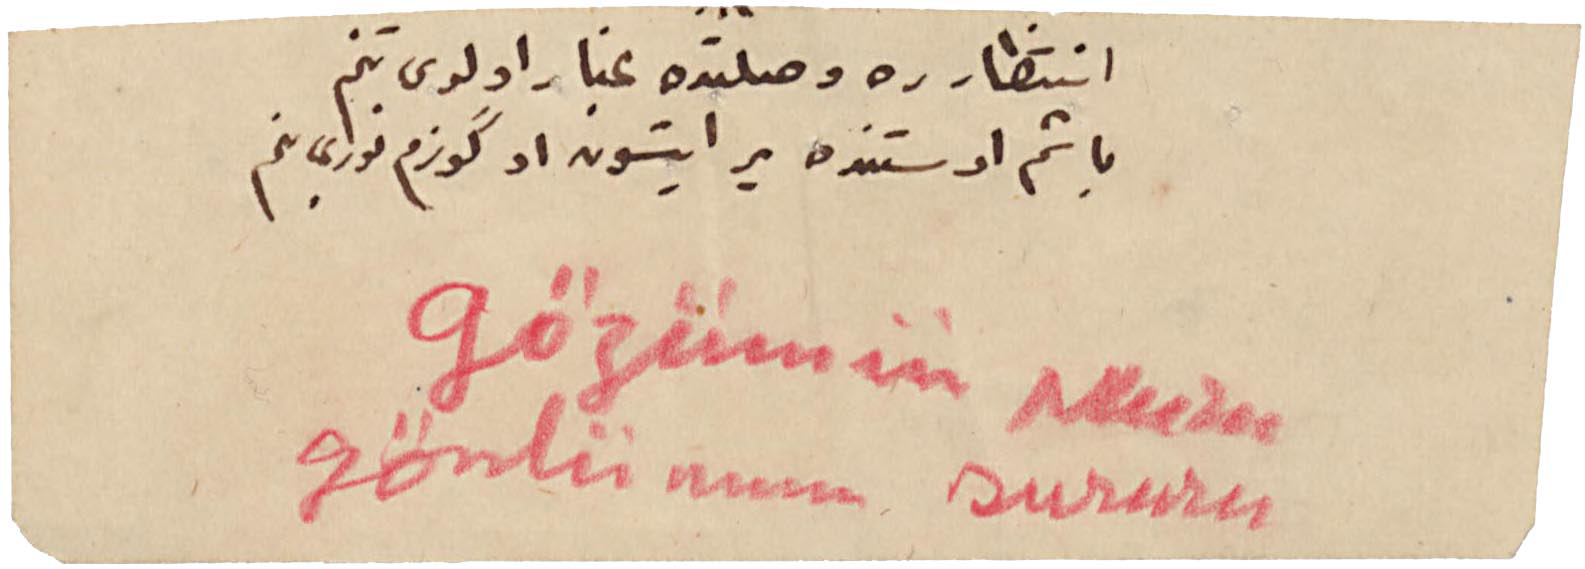 انتظار ره وصلتده غبار اولدی تنم
باشم اوستنده یر ایتسون او گوزم نوری بنم
gözümün nuru
gönlümün sururu